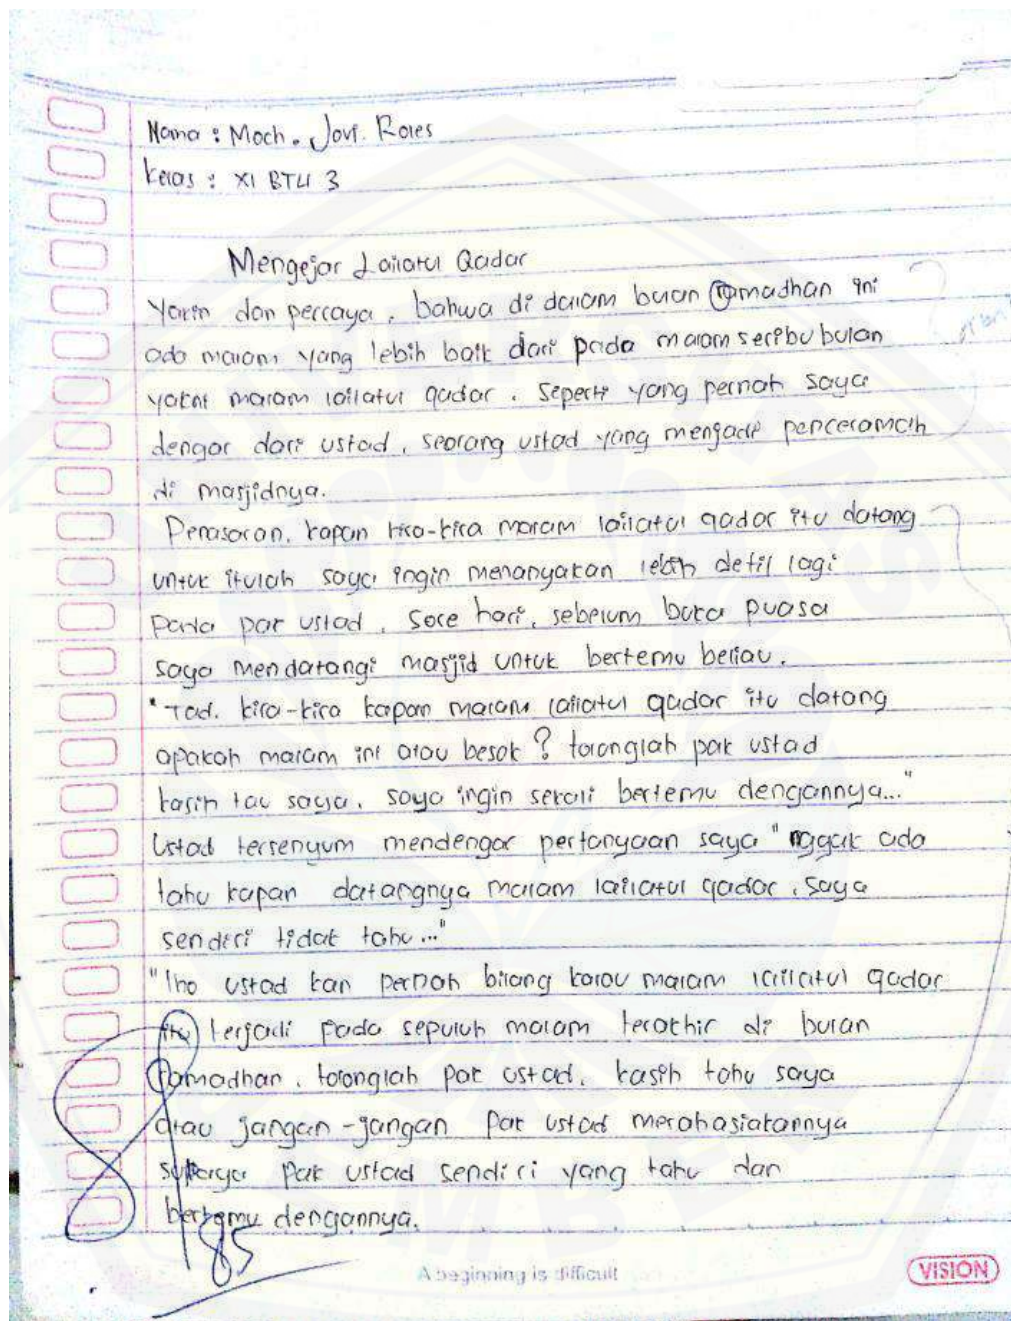 Nama : Moch. Jovi. Roles
Kelas : XI BTU 3
Mengejar Lailatul Qadar
Yakin dan percaya, bahwa di dalam bulan ramadhan ini
ada malam yang lebih baik dari pada malam seribu bulan
yakni malam lailatul qadar. Seperti yang pernah saya
dengar dari ustad, seorang ustad yang menjadi penceramah
di masjidnya.
Penasaran, kapan kira-kira malam lailatul qadar itu datang
untuk itulah saya ingin menanyakan lebih detil lagi
pada pak ustad. Sore hari, sebelum buka puasa
saya mendatangi masjid untuk bertemu beliau.
"Tad. kira-kira kapan malam lailatul qadar itu datang
apakah malam ini atau besok? tolonglah pak ustad
kasih tau saya, saya ingin sekali bertemu dengannya..."
Ustad tersenyum mendengar pertanyaan saya "nggak ada
tahu kapan datangnya malam lailatul qadar, saya
sendiri tidak tahu..."
"lho ustad kan pernah bilang kalau malam lailatul qadar
itu terjadi pada sepuluh malam terakhir di bulan
ramadhan. tolonglah pak ustad, kasih tahu saya
atau jangan-jangan pak ustad merahasiakannya
supaya pak ustad sendiri yang tahu dan
bertemu dengannya.
85
A beginning is difficult
VISION